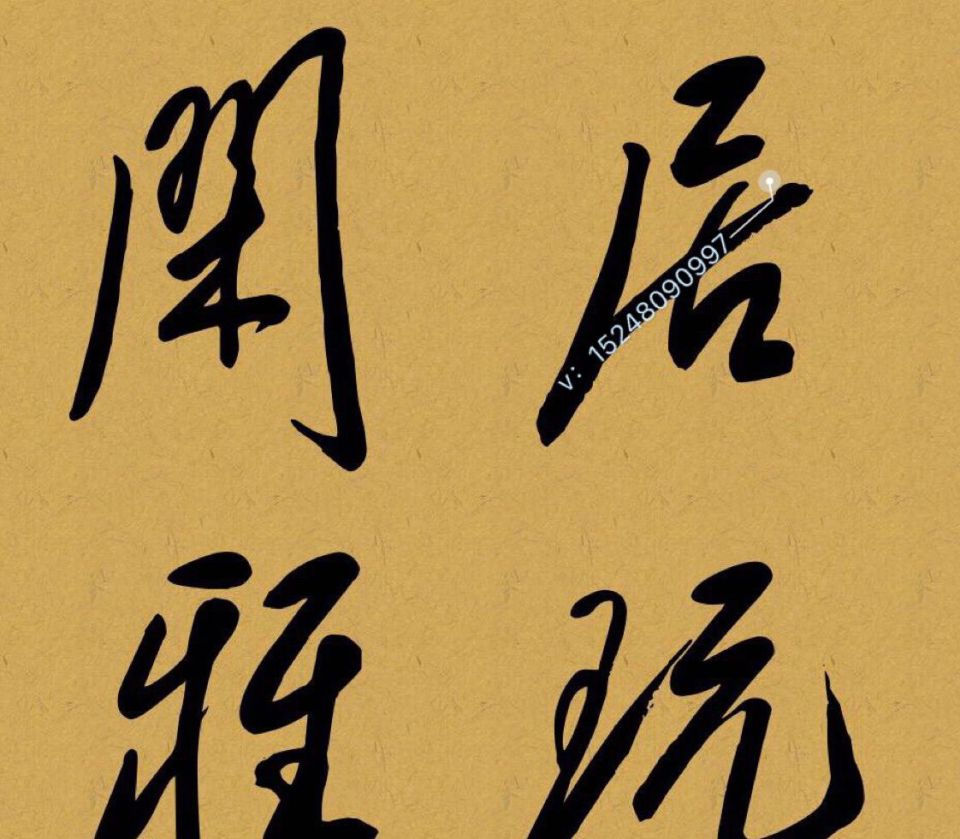 閑居
雅玩
v：15248090997